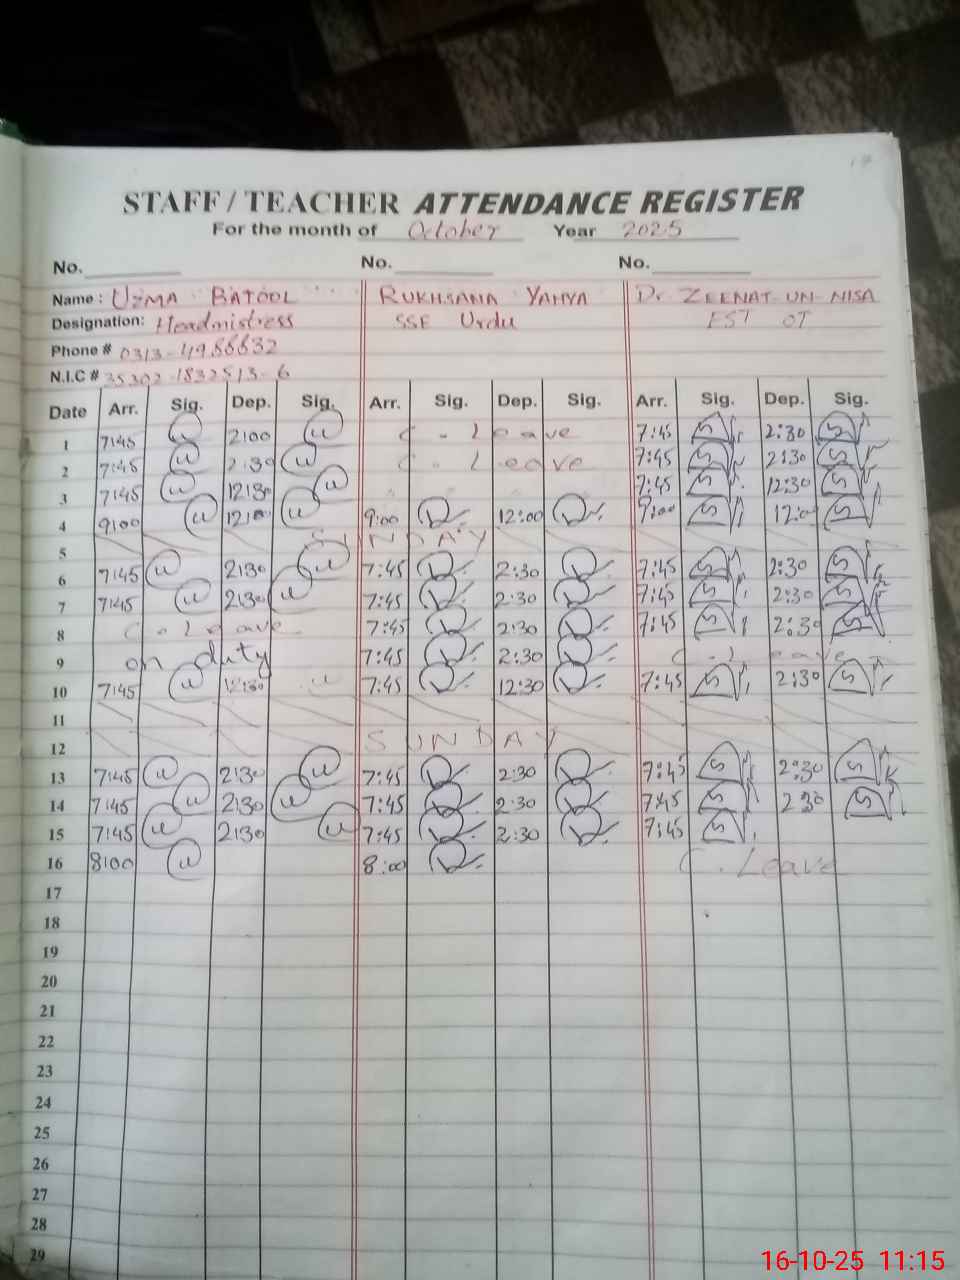 17
STAFF / TEACHER ATTENDANCE REGISTER
For the month of October Year 2025
No. No. No.
Name : UZMA BATOOL RUKHSANA YAHYA Dr. ZEENAT-UN-NISA
Designation: Headmistress SSE Urdu EST OT
Phone #
N.I.C #
Date Arr. Sig. Dep. Sig. Arr. Sig. Dep. Sig. Arr. Sig. Dep. Sig.
1 7:45 2:00 C. Leave 7:45 2:30
2 7:45 2:30 C. Leave 7:45 2:30
3 7:45 12:30 7:45 12:30
4 9:00 12:00 9:00 12:00 9:00 12:00
5 SUNDAY
6 7:45 2:30 7:45 2:30 7:45 2:30
7 7:45 2:30 7:45 2:30 7:45 2:30
8 C. Leave 7:45 2:30 7:45 2:30
9 on duty 7:45 2:30 C. Leave
10 7:45 12:30 7:45 12:30 7:45 2:30
11
12 SUNDAY
13 7:45 2:30 7:45 2:30 7:45 2:30
14 7:45 2:30 7:45 2:30 7:45 2:30
15 7:45 2:30 7:45 2:30 7:45
16 8:00 8:00 C. Leave
17
18
19
20
21
22
23
24
25
26
27
28
29
16-10-25 11:15